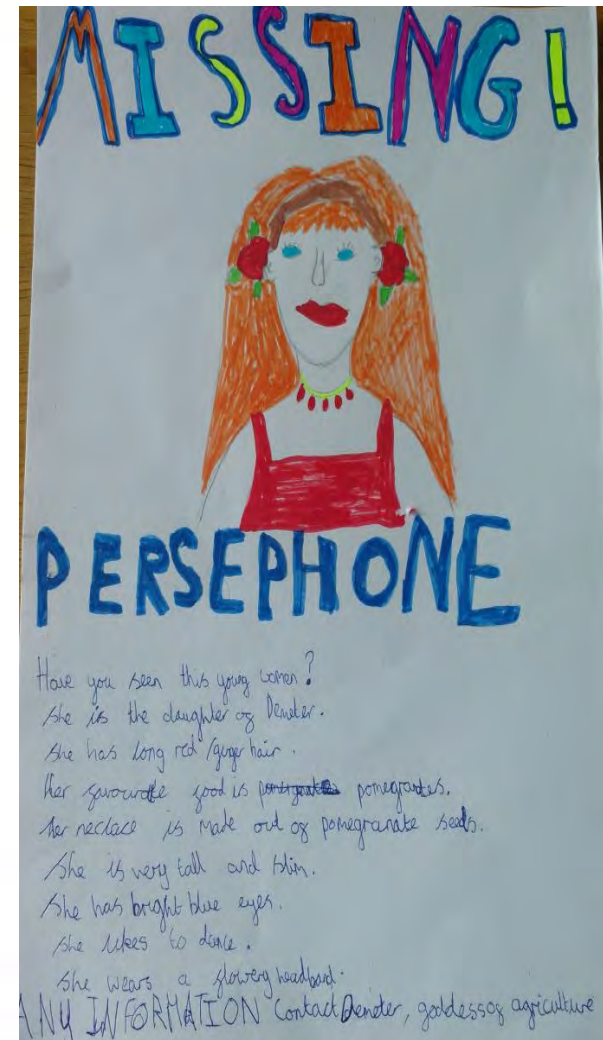 MISSING!
PERSEPHONE
Have you seen this young women?
she is the daughter of Demeter.
she has long red/ginger hair.
Her favourite food is pomegranates pomegranates.
her neclace is made out of pomegranate seeds.
She is very tall and slim.
She has bright blue eyes.
she likes to dance.
She wears a flowery headband.
ANY INFORMATION Contact Demeter, goddess of agriculture